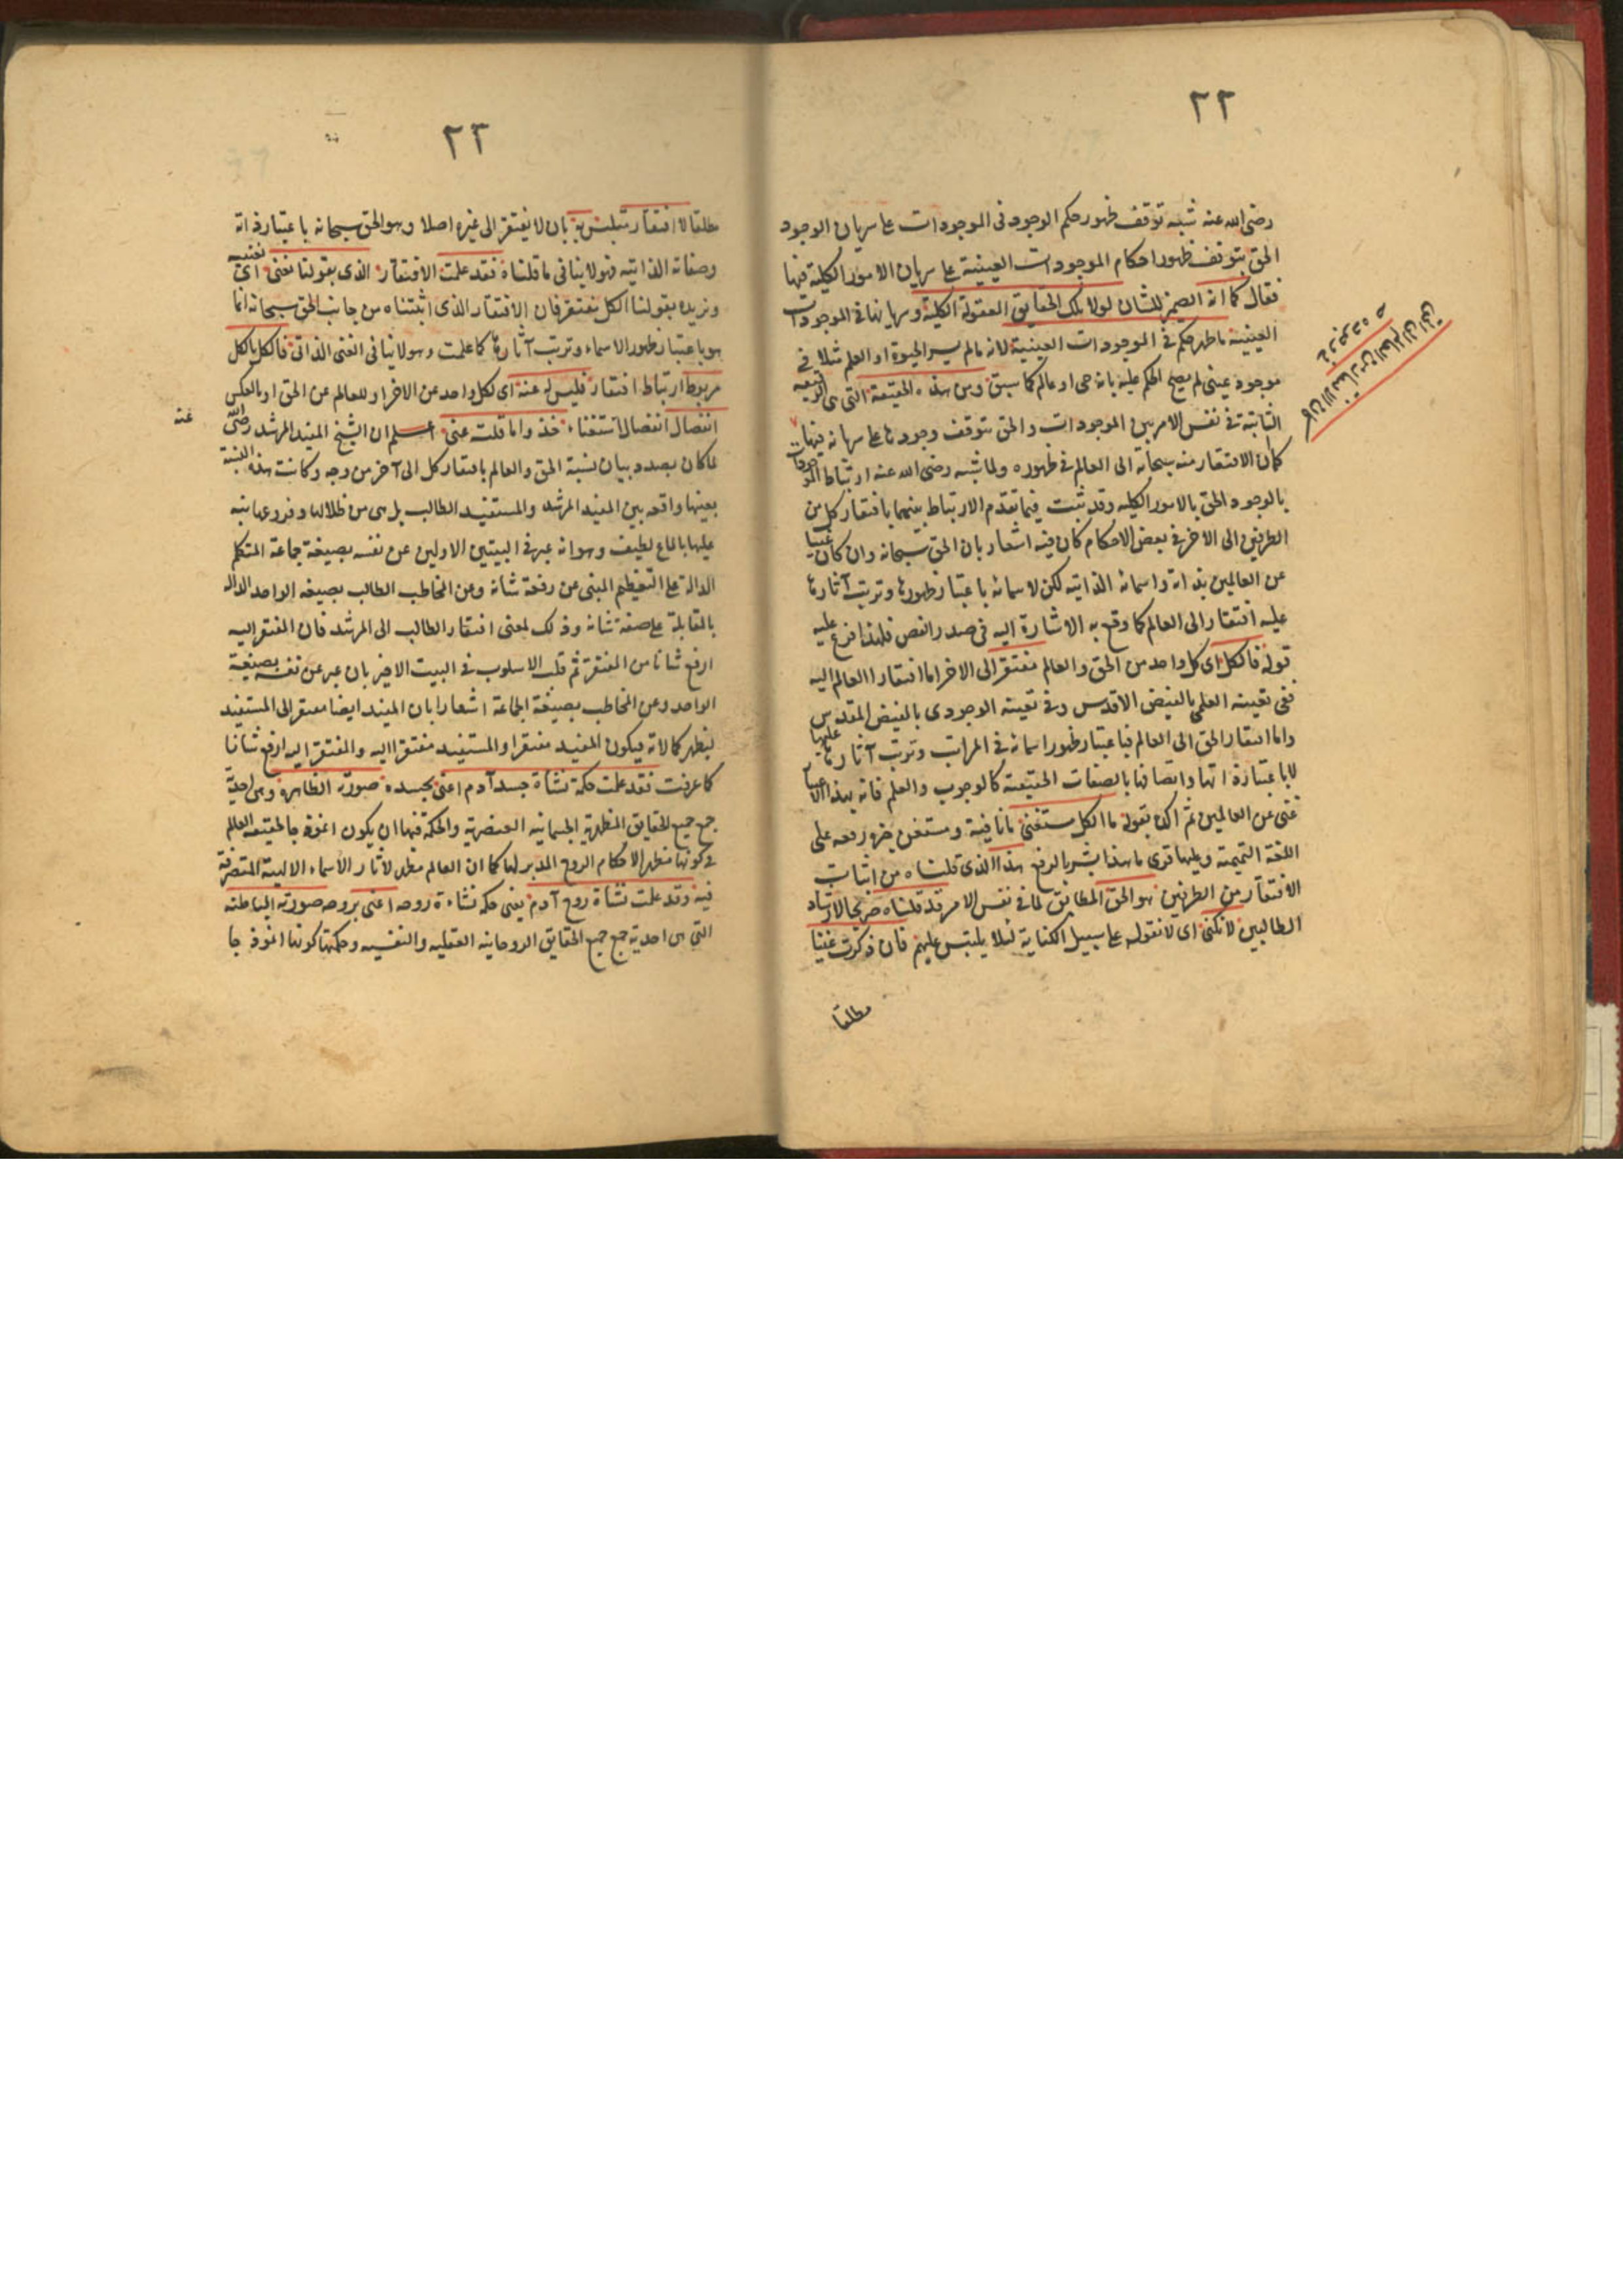 ٢٢
رضى الله عنه شبه توقف ظهور حكم الوجود فى الموجودات على سريان الوجود
الحق بتوقف ظهور احكام الموجودات العينية على سريان الامور الكلية فيها
فقال كما انه الضمير للشان لولا تلك الحقايق المعقولة الكلية وسريانها فى الموجودات
العينية ما ظهر حكم فى الموجودات العينية لانه مالم يسر الحيوة او العلم مثلا فى
موجود عينى لم يصح الحكم عليه بانه حى او عالم كما سبق ومن هذه الحقيقة التى هى
الثابتة فى نفس الامر بين الموجودات والحق بتوقف وجودها على سريانه فيها
كان الافتقار من العالم الى الحق فى وجوده
كان الافتقار منه سبحانه الى العالم فى ظهوره ولما شبه رضى الله عنه ارتباط
بالوجود الحق بالامور الكلية وقد ثبت فيما تقدم الارتباط بينهما بافتقار كل من
الطرفين الى الاخر فى بعض الاحكام كان فيه اشعار بان الحق سبحانه وان كان غنيا
عن العالمين بذاته واسمائه الذاتية لكن لاسمائه باعتبار ظهورها وترتب آثارها
عليه افتقار الى العالم كما وقع به الاشارة اليه فى صدر الفص فلهذا فرع عليه
قوله فالكل اى كل واحد من الحق والعالم مفتقر الى الاخر اما افتقار العالم اليه
ففى تعينه العلمى بالفيض الاقدس وفى تعينه الوجودى بالفيض المقدس
واما افتقار الحق الى العالم فباعتبار ظهور اسمائه فى المراتب وترتب آثارها عليها
لا باعتبار ذاتها واتصافها بالصفات الحقيقية كالوجوب والعلم فانه بهذا الاعتبار
غنى عن العالمين ثم اكده بقوله ما الكل مستغنى ما نافية ومستغن خبره رفعه على
اللغة التميمية وعليها قرى ما هذا بشر بالرفع هذا الذى قلناه من اثبات
الافتقار من الطرفين هو الحق المطابق لما فى نفس الامر قد قلناه صريحا لارشاد
الطالبين لا نكنى اى لا نقوله على سبيل الكناية لئلا يلتبس عليهم فان ذكرت غنيا
مطلقا
٢٣
مطلقا لا افتقار متلبس به بان لا يفتقر الى غيره اصلا وهو الحق سبحانه باعتبار ذاته
وصفاته الذاتية فهو لا ينافى ما قلناه فقد علمت الافتقار الذى بقولنا نعنى اى نعنيه
ونريده بقولنا الكل مفتقر فان الافتقار الذى اثبتناه من جانب الحق سبحانه انما
هو باعتبار ظهور الاسماء وترتب آثارها كما علمت وهو لا ينافى الغنى الذاتى فالكل بالكل
مربوط ارتباط افتقار فليس له عنه اى لكل واحد عن الاخر او للعالم عن الحق او بالعكس
انفصال انفصال استغناء خذوا ما قلت عنى اعلم ان الشيخ المفيد المرشد رضى الله عنه
لما كان بصدد بيان نسبة الحق والعالم بافتقار كل الى آخر من وجه وكانت هذه النسبة
بعينها واقعه بين المفيد المرشد والمستفيد الطالب بل هى من ظلالها وفروعها نبه
عليها بالماع لطيف وهو انه عبر فى البيتين الاولين عن نفسه بصيغة جماعة المتكلم
الدالة على التعظيم المبنى عن رفعة شانه وعن المخاطب الطالب بصيغه الواحد الداله
بالمقابلة على صفة شانه وذلك لمعنى افتقار الطالب الى المرشد فان المفتقر اليه
ارفع شانا من المفتقر ثم قلب الاسلوب فى البيت الاخير بان عبر عن نفسه بصيغة
الواحد وعن المخاطب بصيغة الجماعة اشعارا بان المفيد ايضا مفتقر الى المستفيد
ليظهر كمالاته فيكون المفيد مفتقرا والمستفيد مفتقرا اليه والمفتقر اليه ارفع شانا
كما عرفت فقد علمت حكمة نشاة جسد آدم اعنى بجسده صورته الظاهرة وهى احدية
جمع جميع الحقايق المظهرية الجسمانية العنصرية والحكمة فيها ان يكون انموذجا لحقيقة العالم
فى كونها مظهرا لاحكام الروح المدبر لها كما ان العالم مظهر لاثار الاسماء الالهية المتصرفة
فيه وقد علمت نشاة روح آدم يعنى حكمة نشاءة روحه اعنى بروحه صورته الباطنة
التى هى احدية جمع جميع الحقايق الروحانية العقلية والنفسيه وحكمتها كونها انموذجا